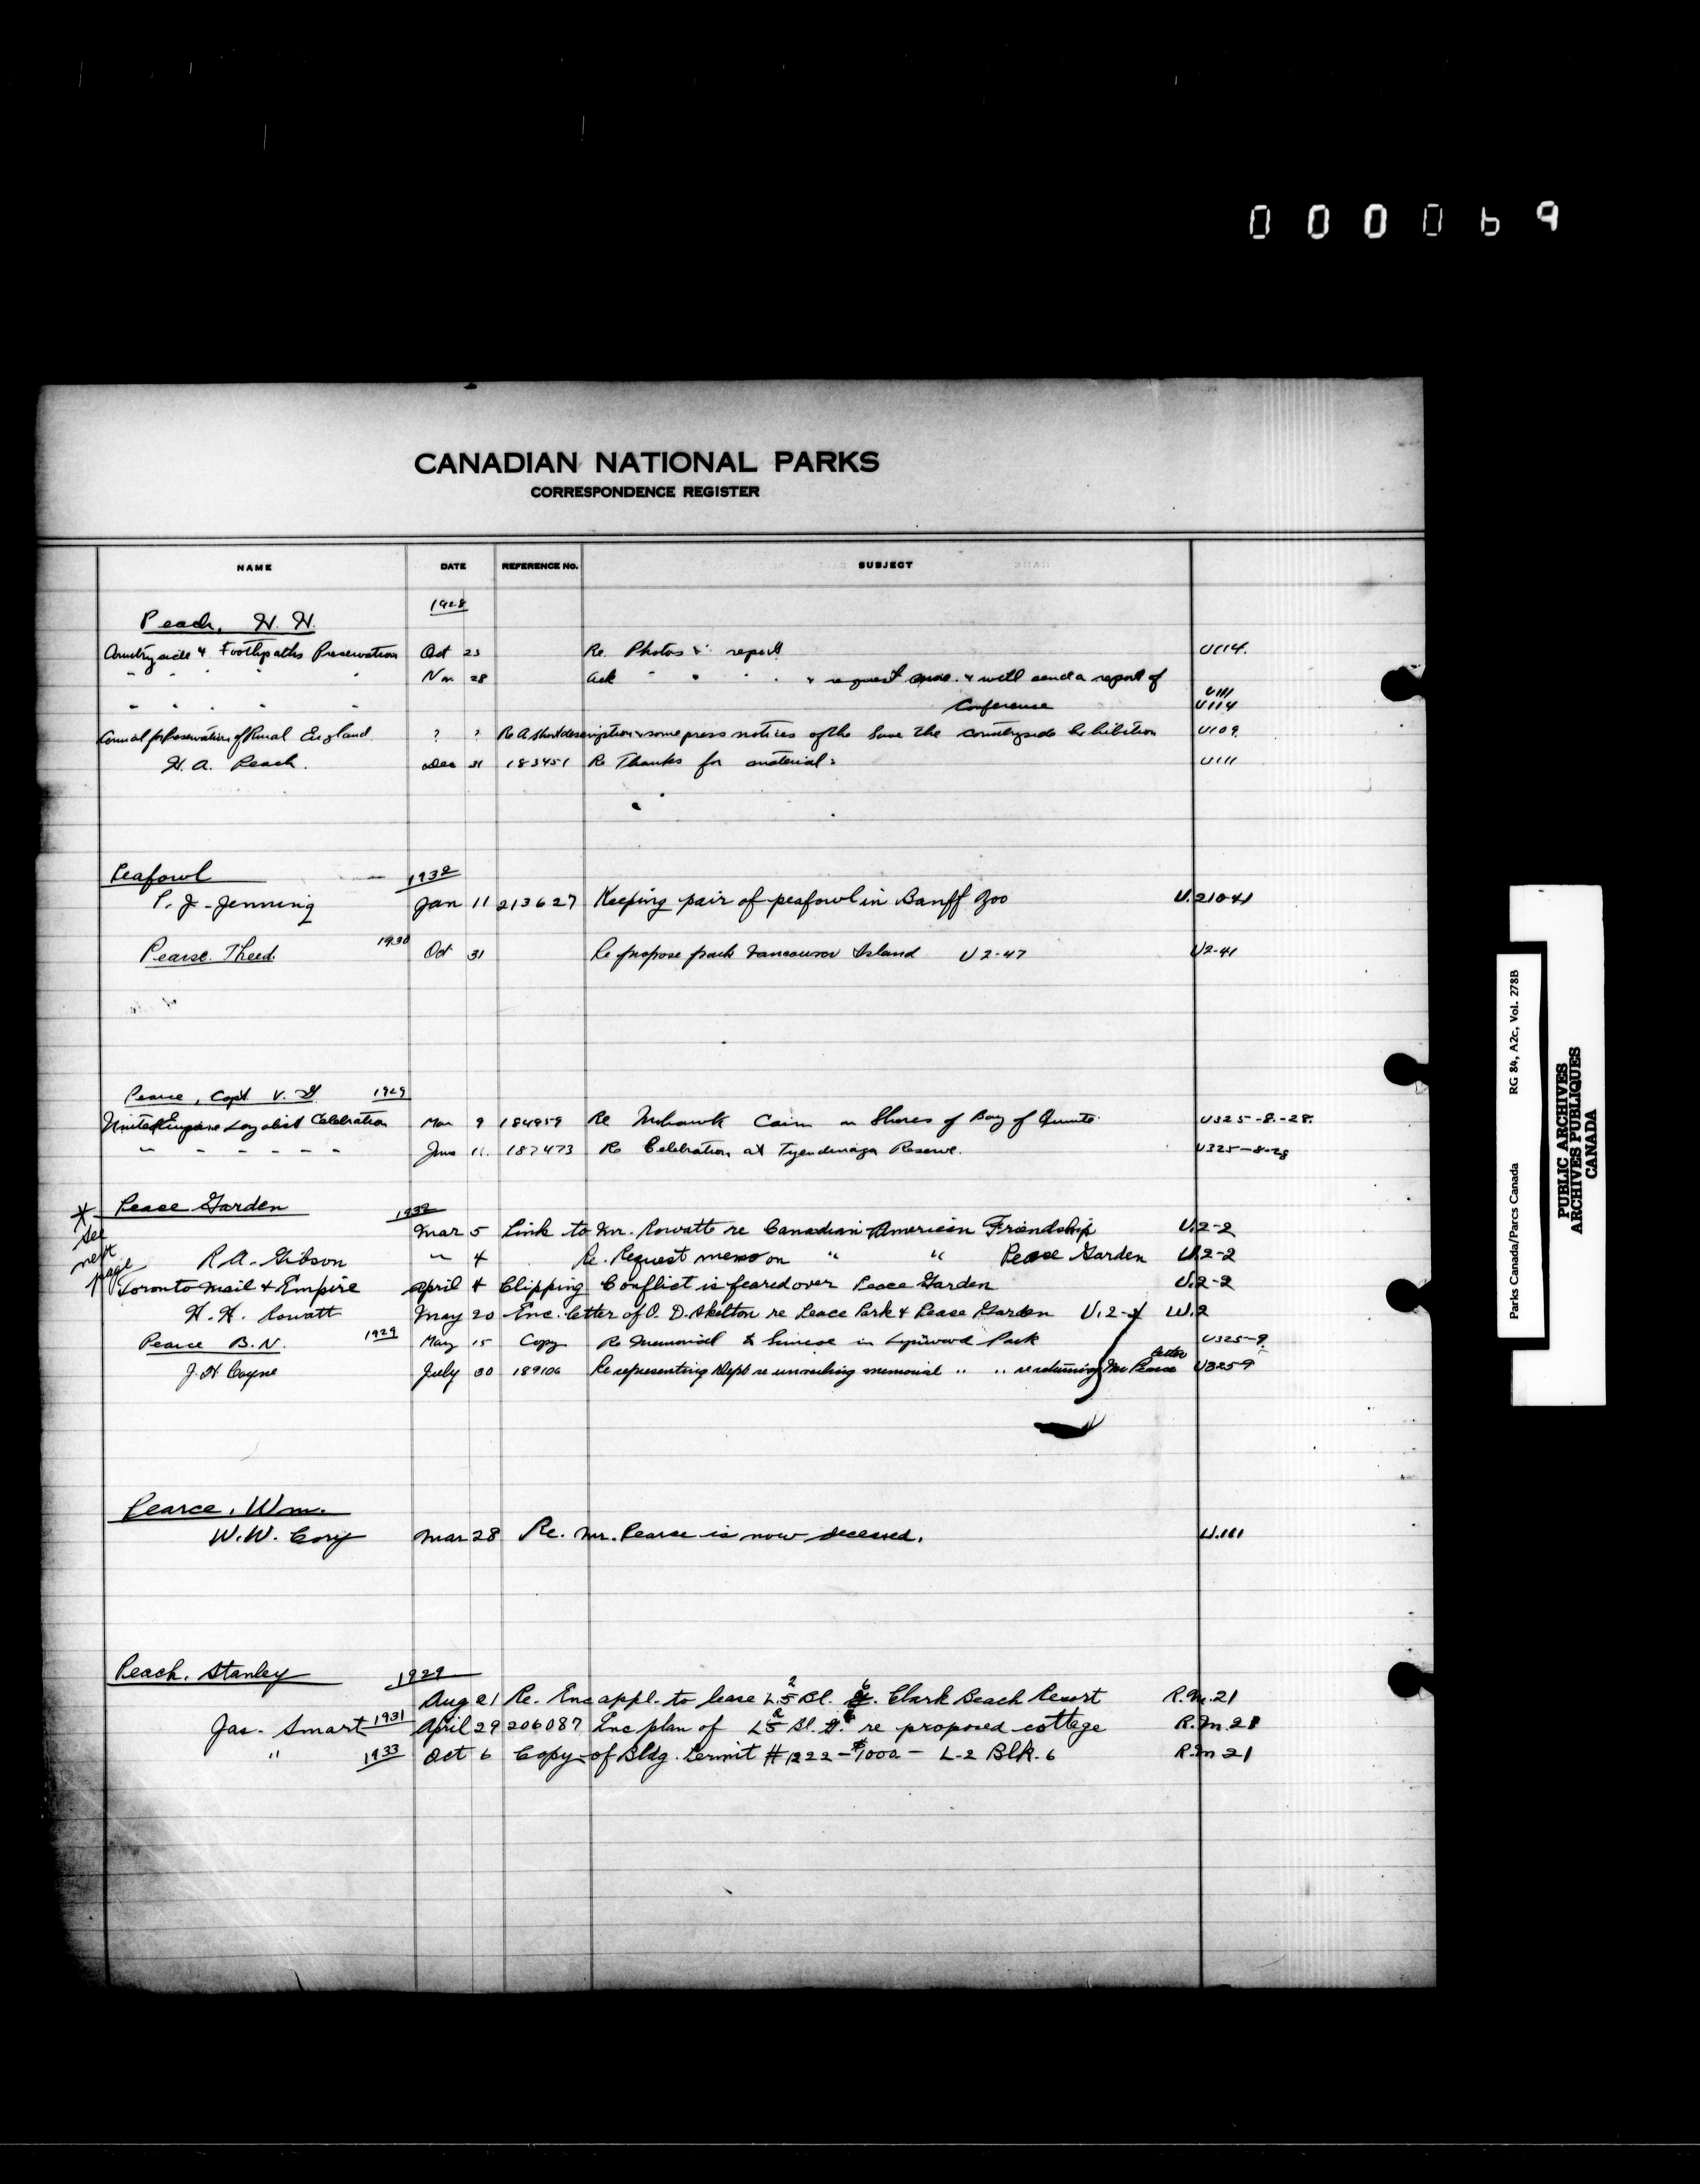 000069
CANADIAN NATIONAL PARKS
CORRESPONDENCE REGISTER
NAME DATE REFERENCE No. SUBJECT
1928
Peach, H. H.
Countryside & Footpaths Preservation Oct 23 Re. Photos & report U114.
" " " " " Nov 28 Ack " " " " & request & will send a report of U111
" " " " " Conference U114
Council for Preservation of Rural England ? ? Re A short description & some press notices of the Save the Countryside Exhibition U109
H. A. Peach. Dec 31 183451 Re Thanks for material. U111
Peafowl 1932
P. J. Jenning Jan 11 213627 Keeping pair of peafowl in Banff Zoo U.210-41
Pearse. Theed. 1930 Oct 31 Re propose park Vancouver Island U2-47 U2-41
Pearce, Capt. V. 1929
United Empire Loyalist Celebration Mar 9 184959 Re Mohawk Cairn on Shores of Bay of Quinte U325-8-28.
" " " " " " June 11. 187473 Re Celebration at Tyendinaga Reserve. U325-8-28
* see next page
Peace Garden 1932
Mar 5 Link to Mr. Rowatt re Canadian American Friendship U.2-2
R. A. Gibson " 4 Re. Request memo on " " Peace Garden U.2-2
Toronto Mail & Empire April 4 Clipping Conflict is feared over Peace Garden U.2-2
H. H. Rowatt May 20 Enc. letter of O. D. Skelton re Peace Park & Peace Garden U.2-2 W.2
Pearce B. N. 1929 May 15 Copy Re Memorial to in Park U325-9.
J. H. Coyne July 30 189106 Re representing Dept re unveiling memorial " " re returning Mr Pearce letter U325-9
Pearce, Wm.
W. W. Cory Mar 28 Re. Mr. Pearce is now deceased. U.111
Peach, Stanley 1929
Aug 21 Re. Enc appl. to lease L.5 2 Bl. 6. Clark Beach Resort R.M.21
Jas. Smart 1931 April 29 206087 Enc plan of L5 2 Bl. 6 re proposed cottage R.M.21
" 1933 Oct 6 Copy of Bldg. Permit #1222 - $1000 - L-2 Blk. 6 R.M 21
Parks Canada/Parcs Canada RG 84, A2c, Vol. 278B
PUBLIC ARCHIVES
ARCHIVES PUBLIQUES
CANADA